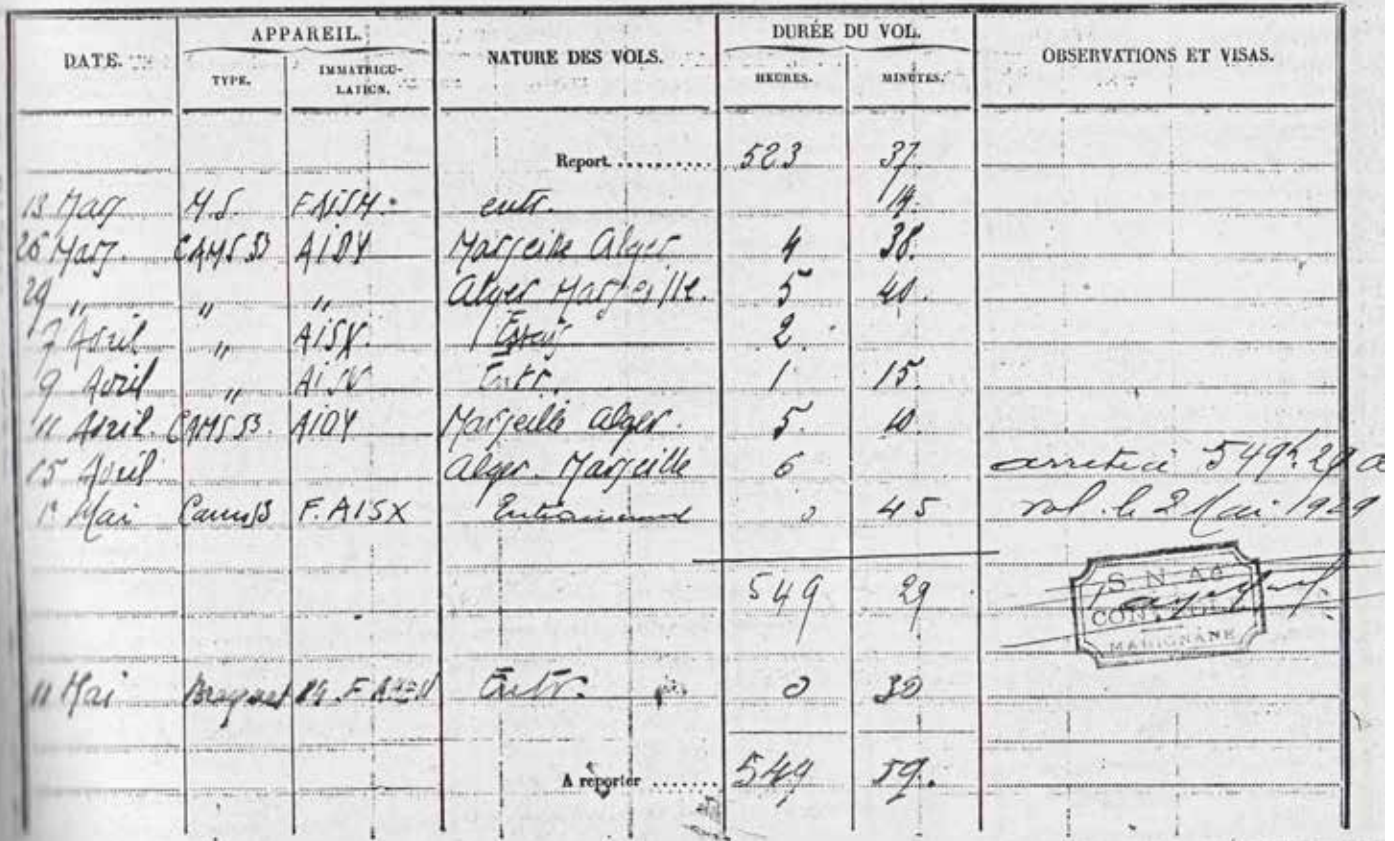 DATE. APPAREIL. NATURE DES VOLS. DURÉE DU VOL. OBSERVATIONS ET VISAS.
TYPE. IMMATRICU- HEURES. MINUTES.
LATION.
Report.......... 523 37
13 Mars M.S. FAISM. entr. 19.
26 Mars. CAMS 53 AIDY Marseille Alger 4 38.
29 " " " Alger Marseille. 5 40.
7 Avril " AISX. Essais 2.
9 Avril " AISX Entr. 1 15
11 Avril. CAMS 53. AIDY Marseille Alger. 5. 10
15 Avril Alger. Marseille 6 arrêté à 549h 29 de
1er Mai Cams 53 F. AISX Entrainement 0 45 vol. le 2 Mai 1929
549 29 S N Aé
CONTROLE
MARIGNANE
11 Mai Breguet 14. F Entr. 0 30
A reporter ...... 549 59.